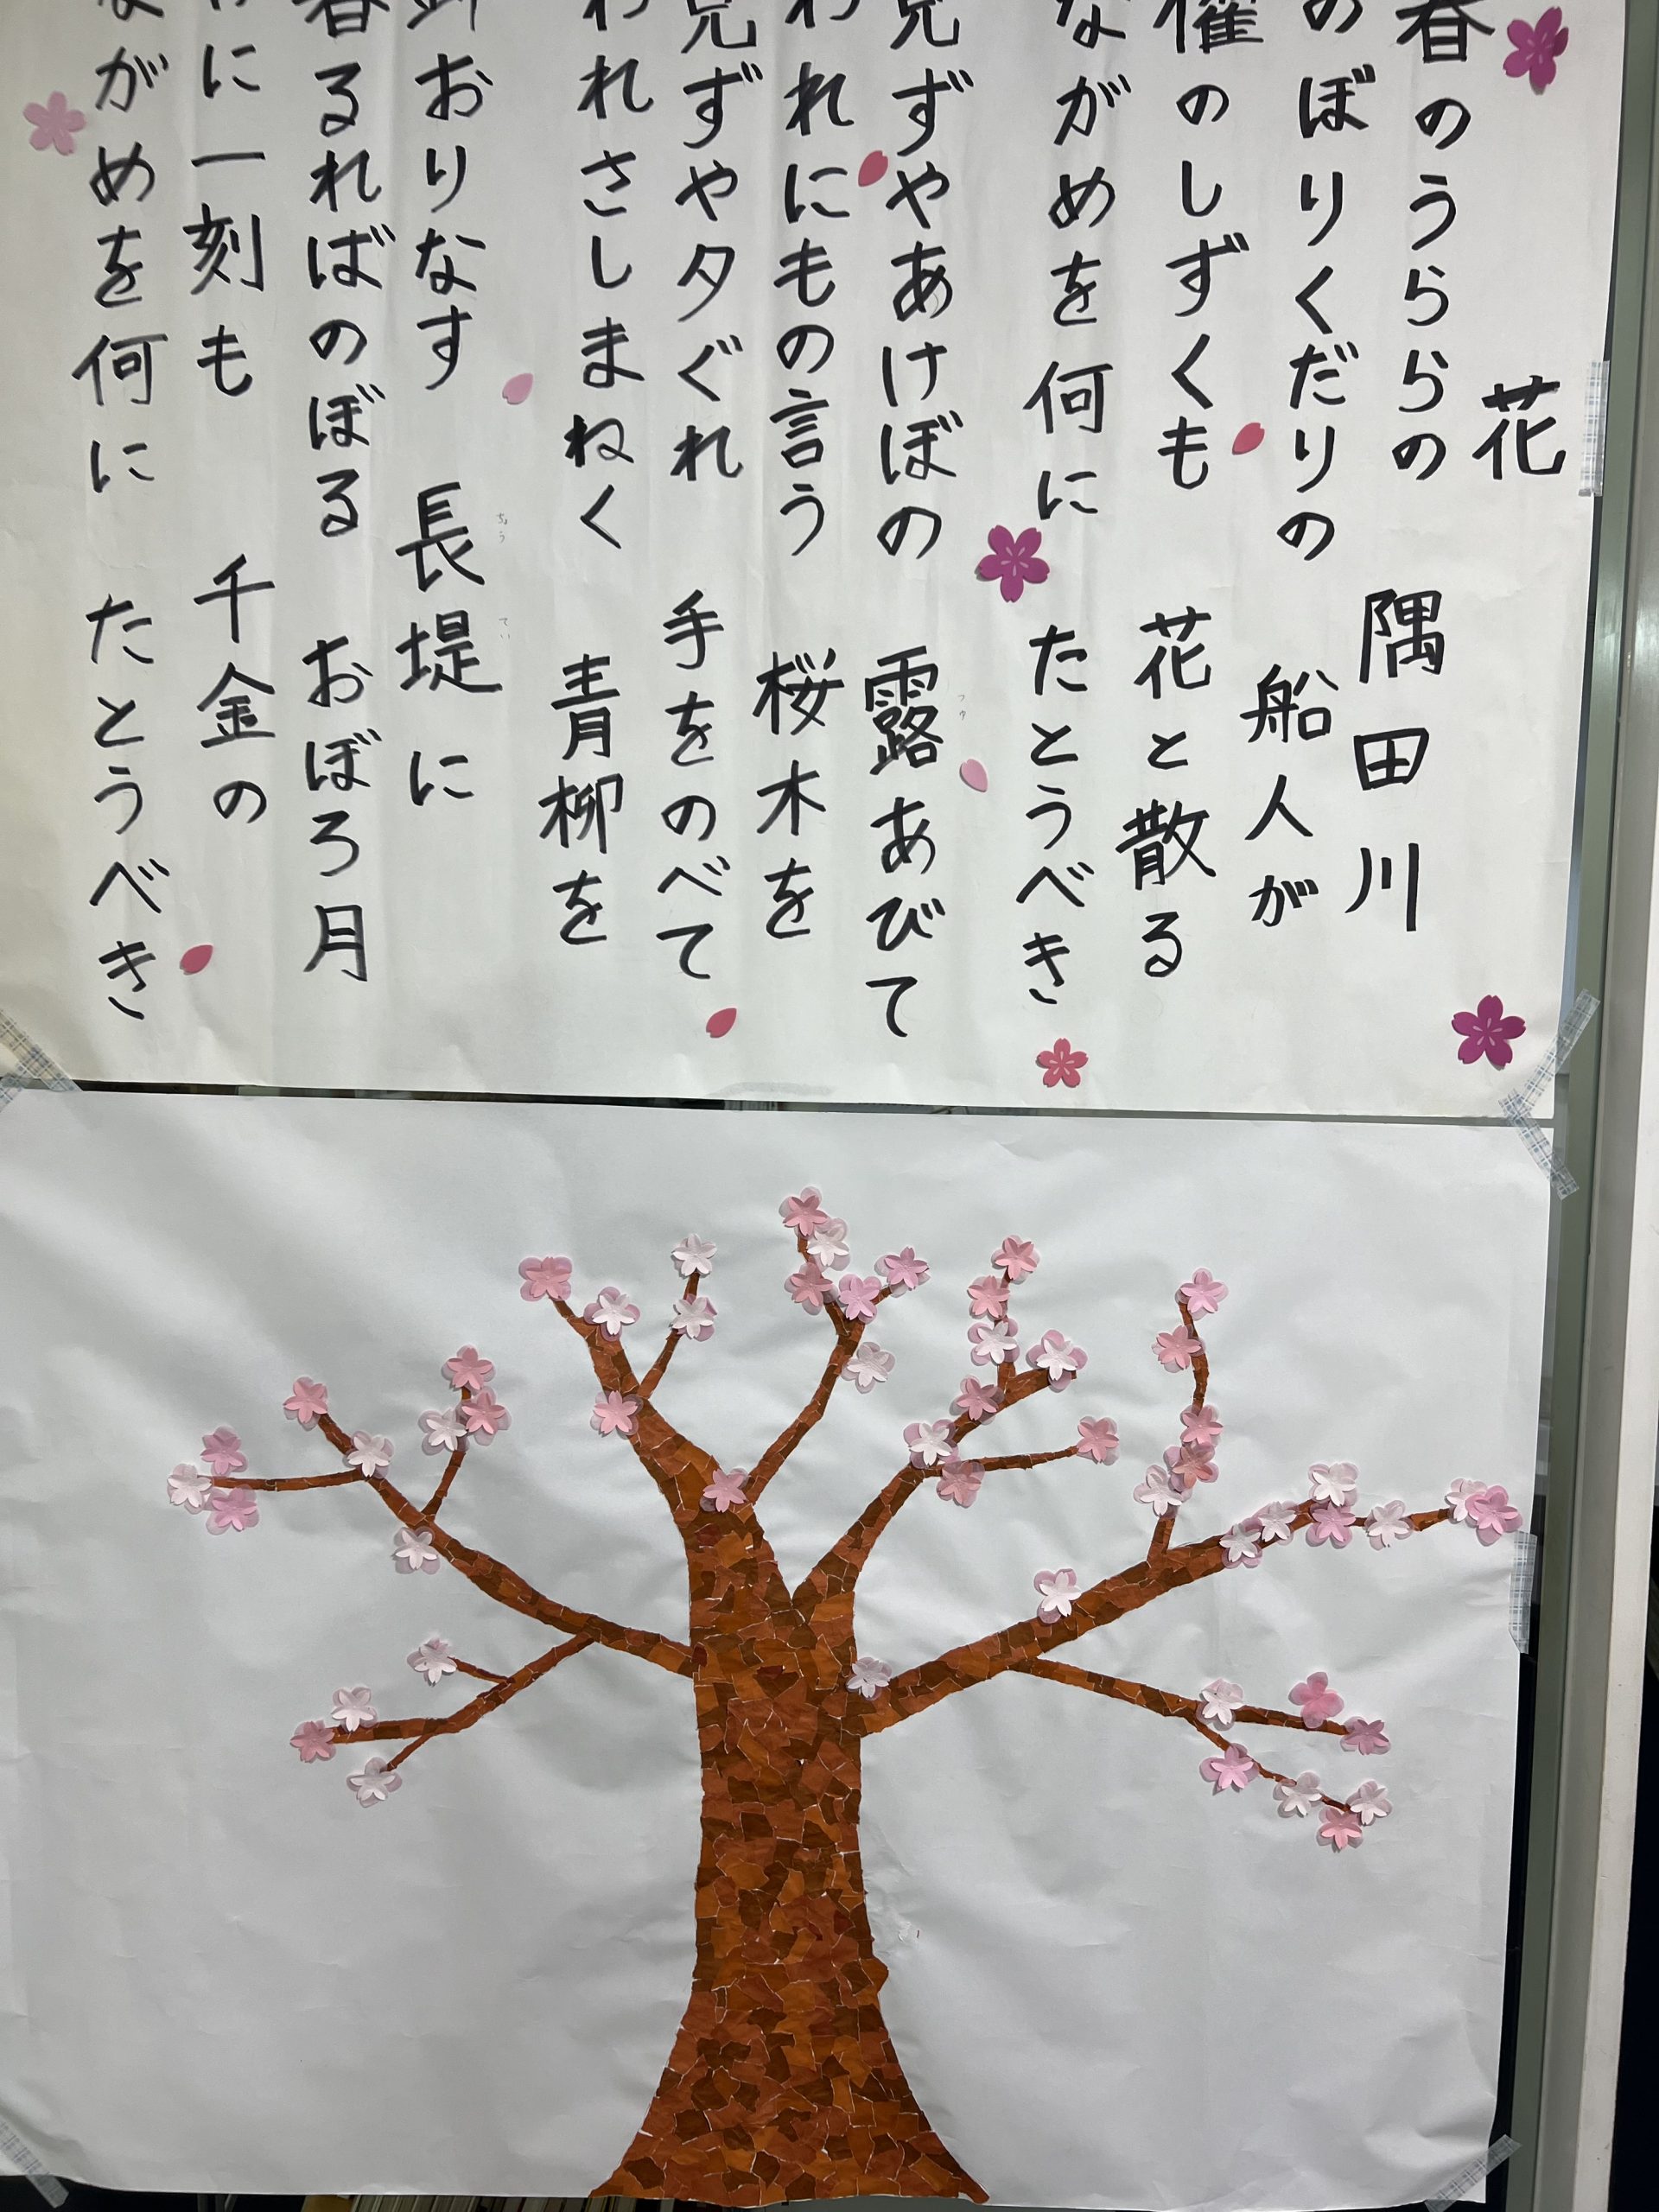 花
春のうららの 隅田川
のぼりくだりの 船人が
櫂のしずくも 花と散る
ながめを何に たとうべき
見ずやあけぼの 露あびて
つゆ
われにもの言う 桜木を
見ずや夕ぐれ 手をのべて
われさしまねく 青柳を
おりなす 長堤に
ちょうてい
春るればのぼる おぼろ月
に一刻も 千金の
ながめを何に たとうべき